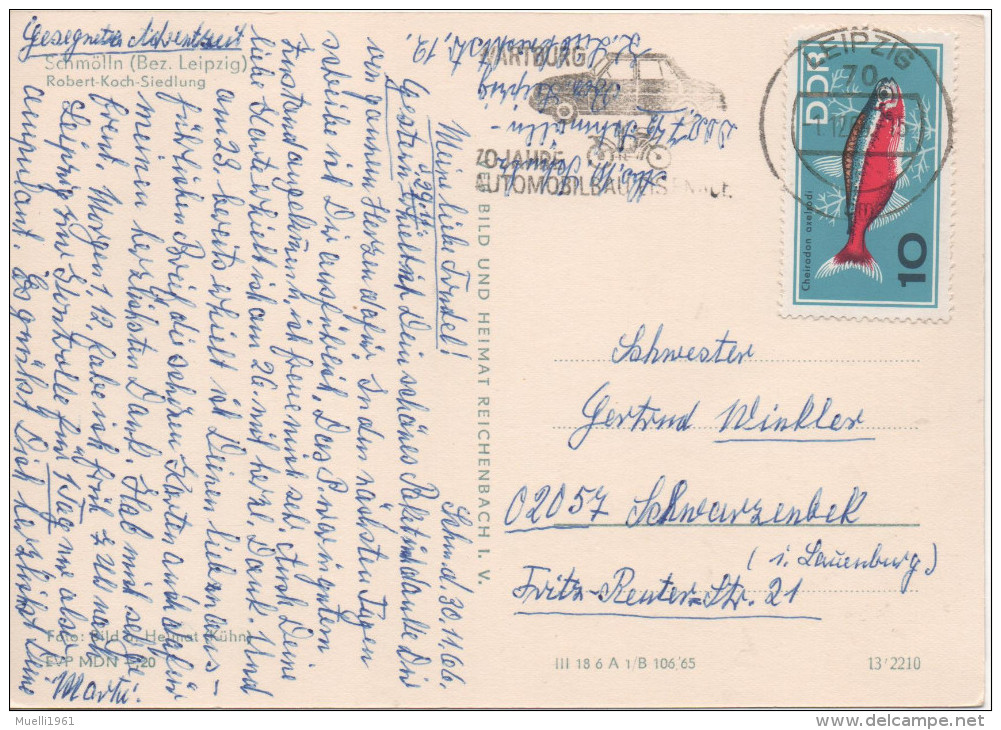 Gesegnete Adventszeit
Schmölln (Bez. Leipzig)
Robert-Koch-Siedlung
Schmö. / 30.11.66.
Meine liebe Trudel!
Gestern, 29.11. erhielt ich Dein schönes Paket und danke Dir
von ganzem Herzen dafür. In den nächsten Tagen
schreibe ich Dir ausführlich. Das P. war in gutem
Zustand angekommen, ich freue mich sehr. Auch Deine
liebe Karte erhielt ich am 26. mit herzl. Dank. Und
am 28. bereits erhielt ich Deinen lieben aus-
führlichen Brief, die schönen Karten auch dafür
meinen herzlichsten Dank. Hab mich sehr ge-
freut. Morgen 1.12. fahre ich früh 7 Uhr nach
Leipzig zur Kontrolle für 1 Tag nur also
ambulant. Es grüßt Dich herzlichst Deine
Martha.
Foto: Bild u. Heimat (Kühn)
EVP MDN 0,20
VEB BILD UND HEIMAT REICHENBACH I. V.
DDR 74 Schmölln -
Bez. Leipzig
WARTBURG
70 JAHRE
AUTOMOBILBAU EISENACH
LEIPZIG
70
DDR
10
Cheirodon axelrodi
Schwester
Gertrud Winkler
02057 Schwarzenbek
(i. Lauenburg)
Fritz-Reuter-Str. 21
III 18 6 A 1/B 106/65
13'2210
Muelli1961